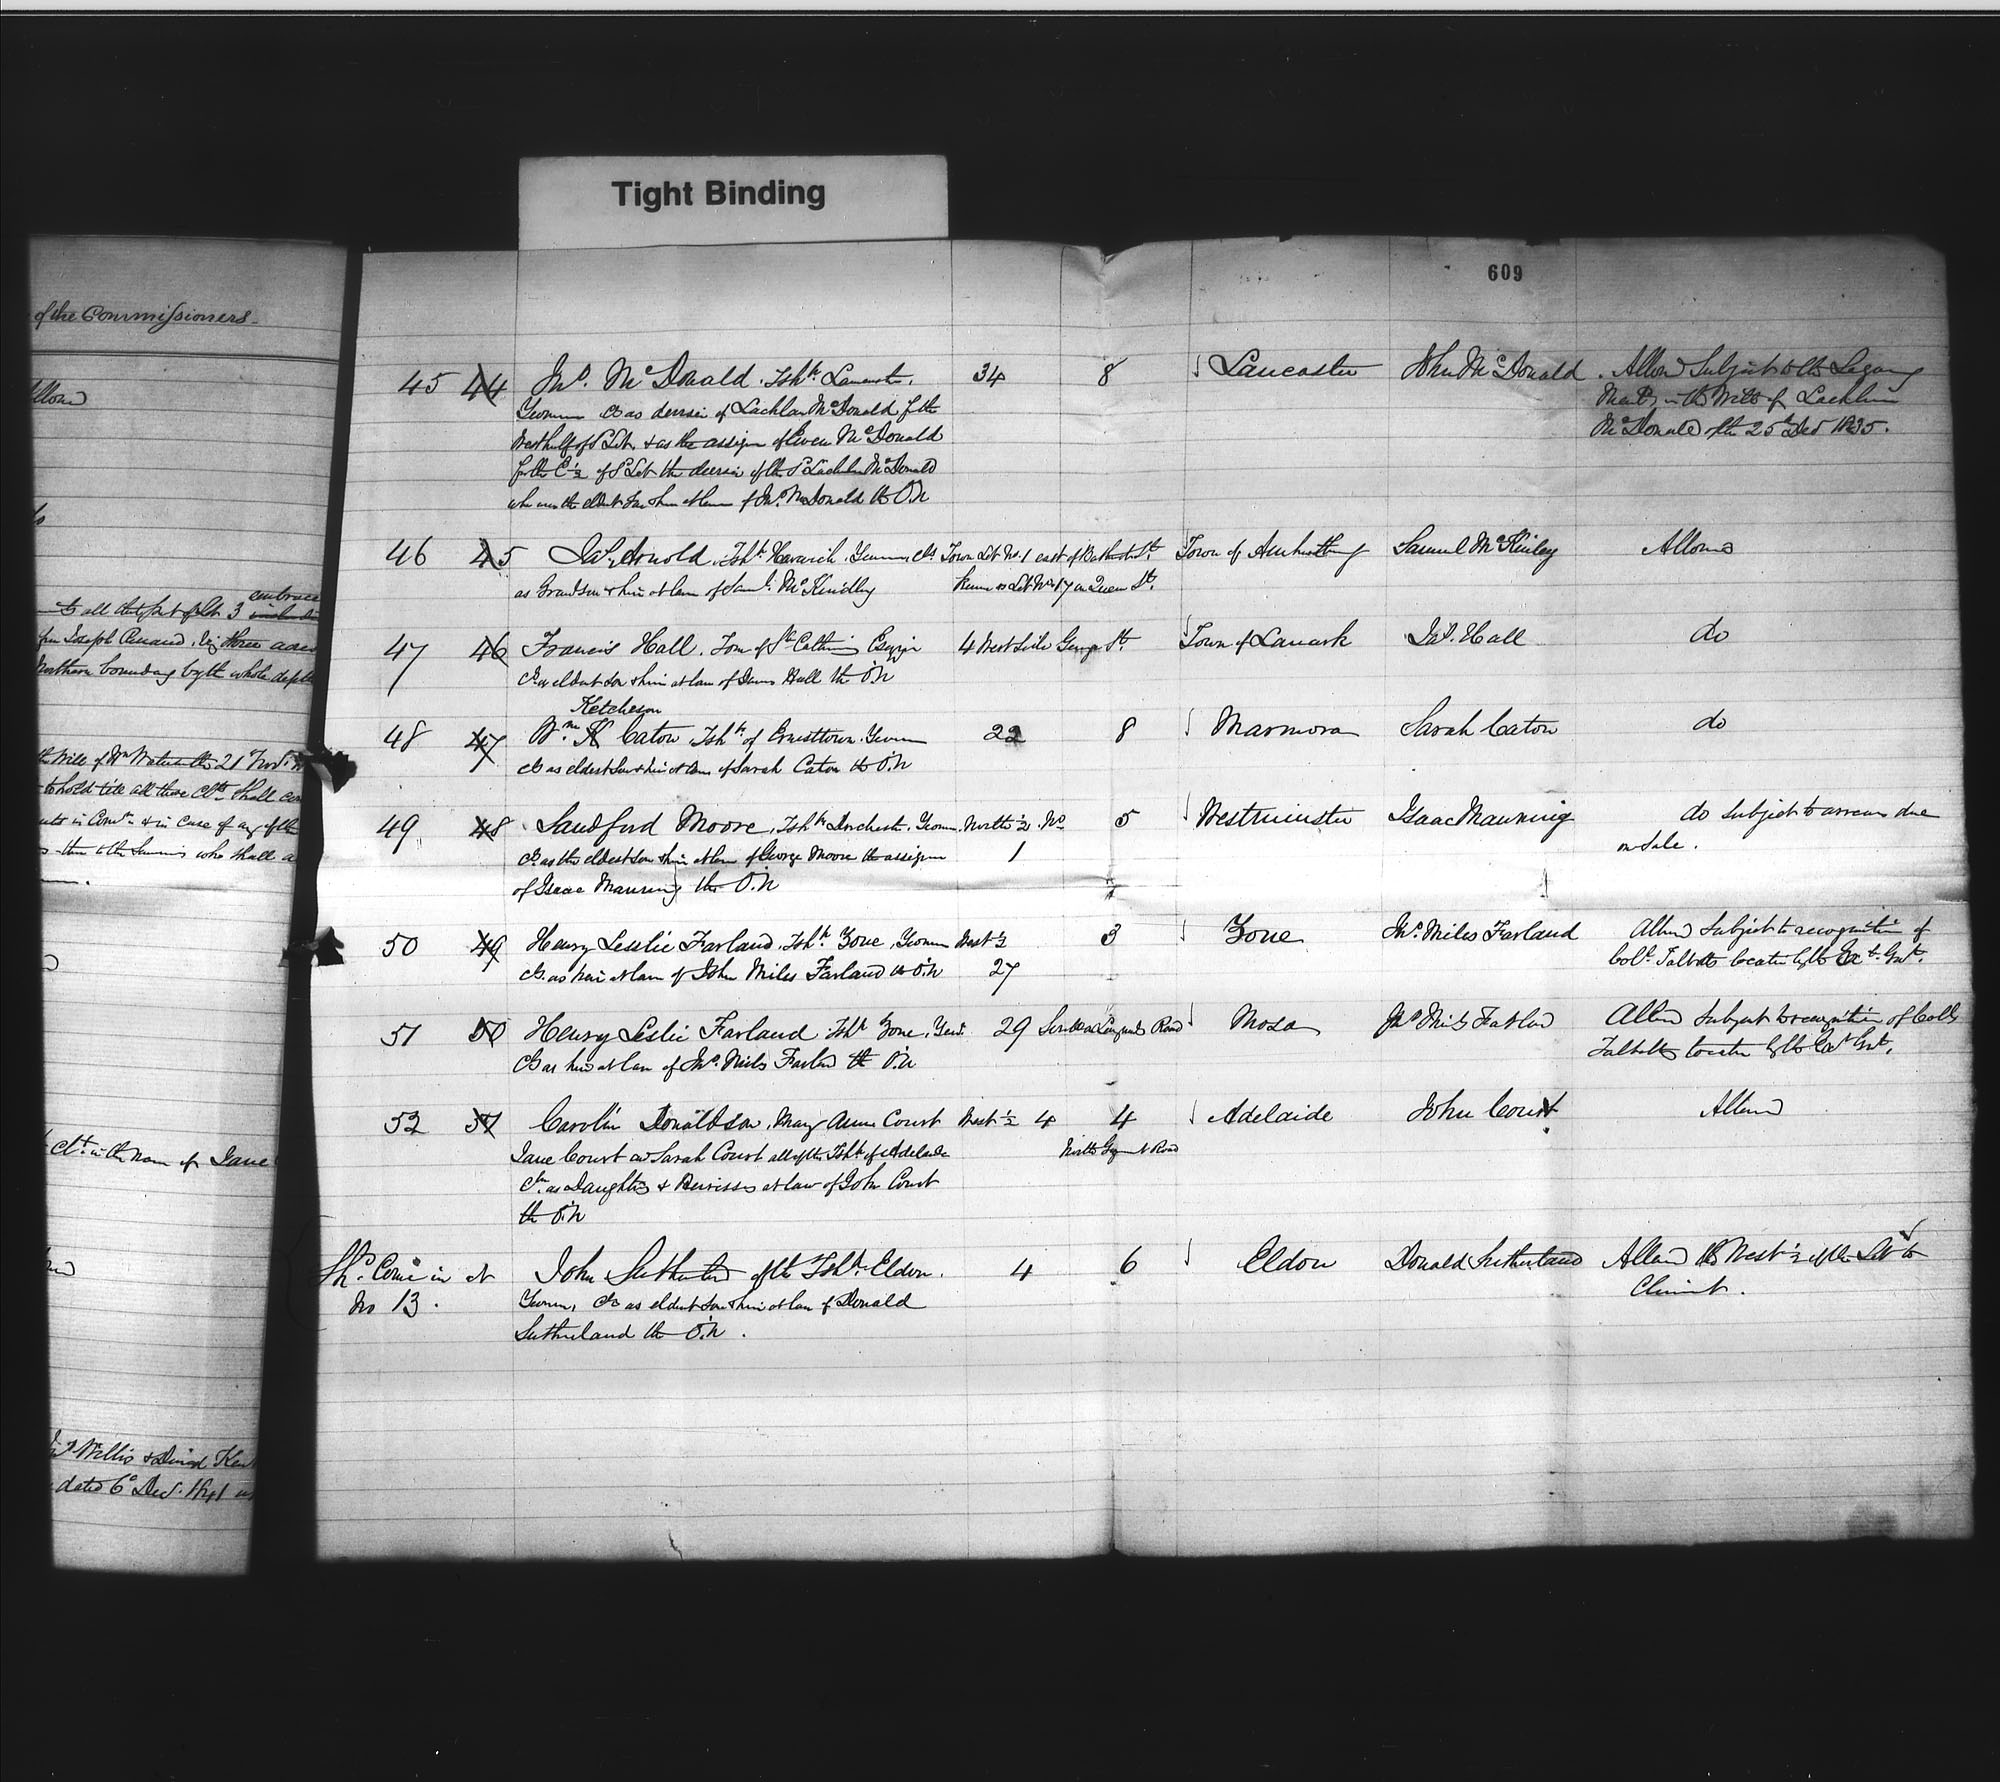 Tight Binding
609
of the Commissioners
embrace
to all that part of Lot 3
from Joseph
Northern boundary by the whole depth
the Will of Wm
to hold till all these Clts shall
and in case of any of the
then to the Survivors who shall
Clt in the name of Jane
Willis & David
dated 6 Decr.
45 44 Jno. McDonald, Tshp. Lancaster, 34 8 Lancaster John McDonald Allowed Subject to the Legacy
Yeoman Cls as devisee of Lachlan McDonald for the
West half of sd Lot & as the assignee of Ewen McDonald
for the E ½ of sd Lot the devisee of the sd Lachlan McDonald
who was the eldest Son & heir at law of Jno. McDonald the O.N
in the Will of Lachlin
McDonald of the 25 Decr 1835.
46 45 Jas. Arnold, Tshp. Harwich, Yeoman, Cls Town Lot No. 1 east of Bathurst St. Town of Amherstburg Samuel McKinley Allowed
as Grandson & heir at law of Saml. McKindley known as Lot No. 17 on Queen St.
47 46 Francis Hall, Town of St Catherines Esquire 4 West side George St. Town of Lanark Jas. Hall do
Cls as eldest Son & heir at law of James Hall the O.N
Ketcheson
48 47 Wm K Caton, Tshp of Ernesttown Yeoman 22 8 Marmora Sarah Caton do
Cls as eldest Son & heir at law of Sarah Caton the O.N
49 48 Sandford Moore, Tshp Dorchester, Yeoman, North ½ No. 5 Westminster Isaac Manning do subject to arrears due
Cls as the eldest Son & heir at law of George Moore the assignee 1 on Sale.
of Isaac Manning the O.N
50 49 Henry Lesslie Farland, Tshp. Zone, Yeoman West ½ 3 Zone Jno. Miles Farland Allowed Subject to recognition of
Cls. as heir at law of John Miles Farland the O.N 27 Coll. Talbots location by the Ext. Govt.
51 50 Henry Leslie Farland Tshp Zone, Yeon. 29 South on Longwoods Road Mosa Jno Miles Farland Allowed Subject to recognition of Colls
Cls as heir at law of Jno. Miles Farland the O.N Talbotts location by the Ext Govt.
52 51 Carolin Donaldson, Mary Anne Court West ½ 4 4 Adelaide John Court Allowed
Jane Court and Sarah Court all of the Tshp of Adelaide North Egremont Road
Cls. as Daughters & Heiresses at law of John Court
the O.N
Shd. Come in at John Sutherland of the Tshp. Eldon. 4 6 Eldon Donald Sutherland Allowed the West ½ of the Lot to
No 13. Yeoman, Cls as eldest Son & heir at law of Donald Claimant.
Sutherland the O.N.